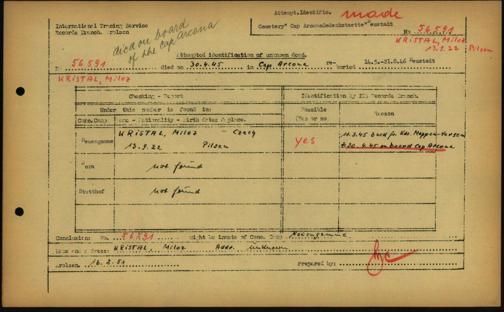 Attempt.Identific. made
International Tracing Service
Records Branch Arolsen
Cemetery "Cap Arcona Gedenkstaette" Neustadt
died on board
of the Cap Arcona
No 56591
KRISTAL, Miloz
13.9.22 Pilsen
Attempted identification of unknown dead.
No 56591 died on 30.4.45 in Cap Arcona re-buried 14.5.-31.8.46 Neustadt
KRISTAL, Miloz
Checking - Report
Identification by ITS Records Branch.
Under this number is found in:
Possible
Yes or no.
Reason
Conc.Camp Name - Nationality - Birth date & place.
Neuengamme KRISTAL, Miloz - Czech
13.9.22 Pilsen
yes
30.4.45 on board Cap Arcona
not found
Stutthof not found
Conclusion: No. 56591 might be inmate of Conc. Camp Neuengamme
KRISTAL, Miloz Addr. unknown
Arolsen, 16.2.51 Prepared by: